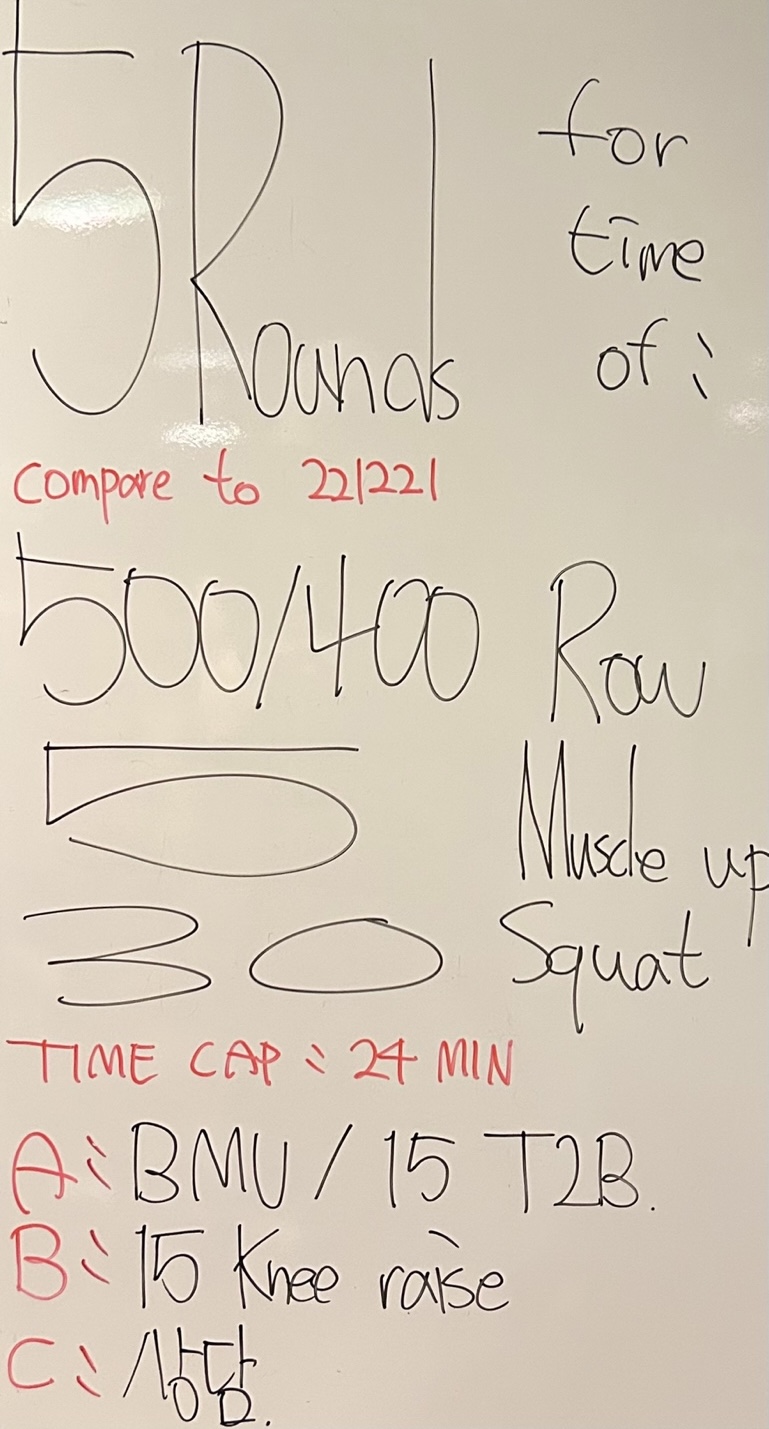 5 Rounds for
time
of:
Compare to 221221
500/400 Row
5 Muscle up
30 Squat
TIME CAP: 24 MIN
A: BMU / 15 T2B.
B: 15 Knee raise
C: 상담.